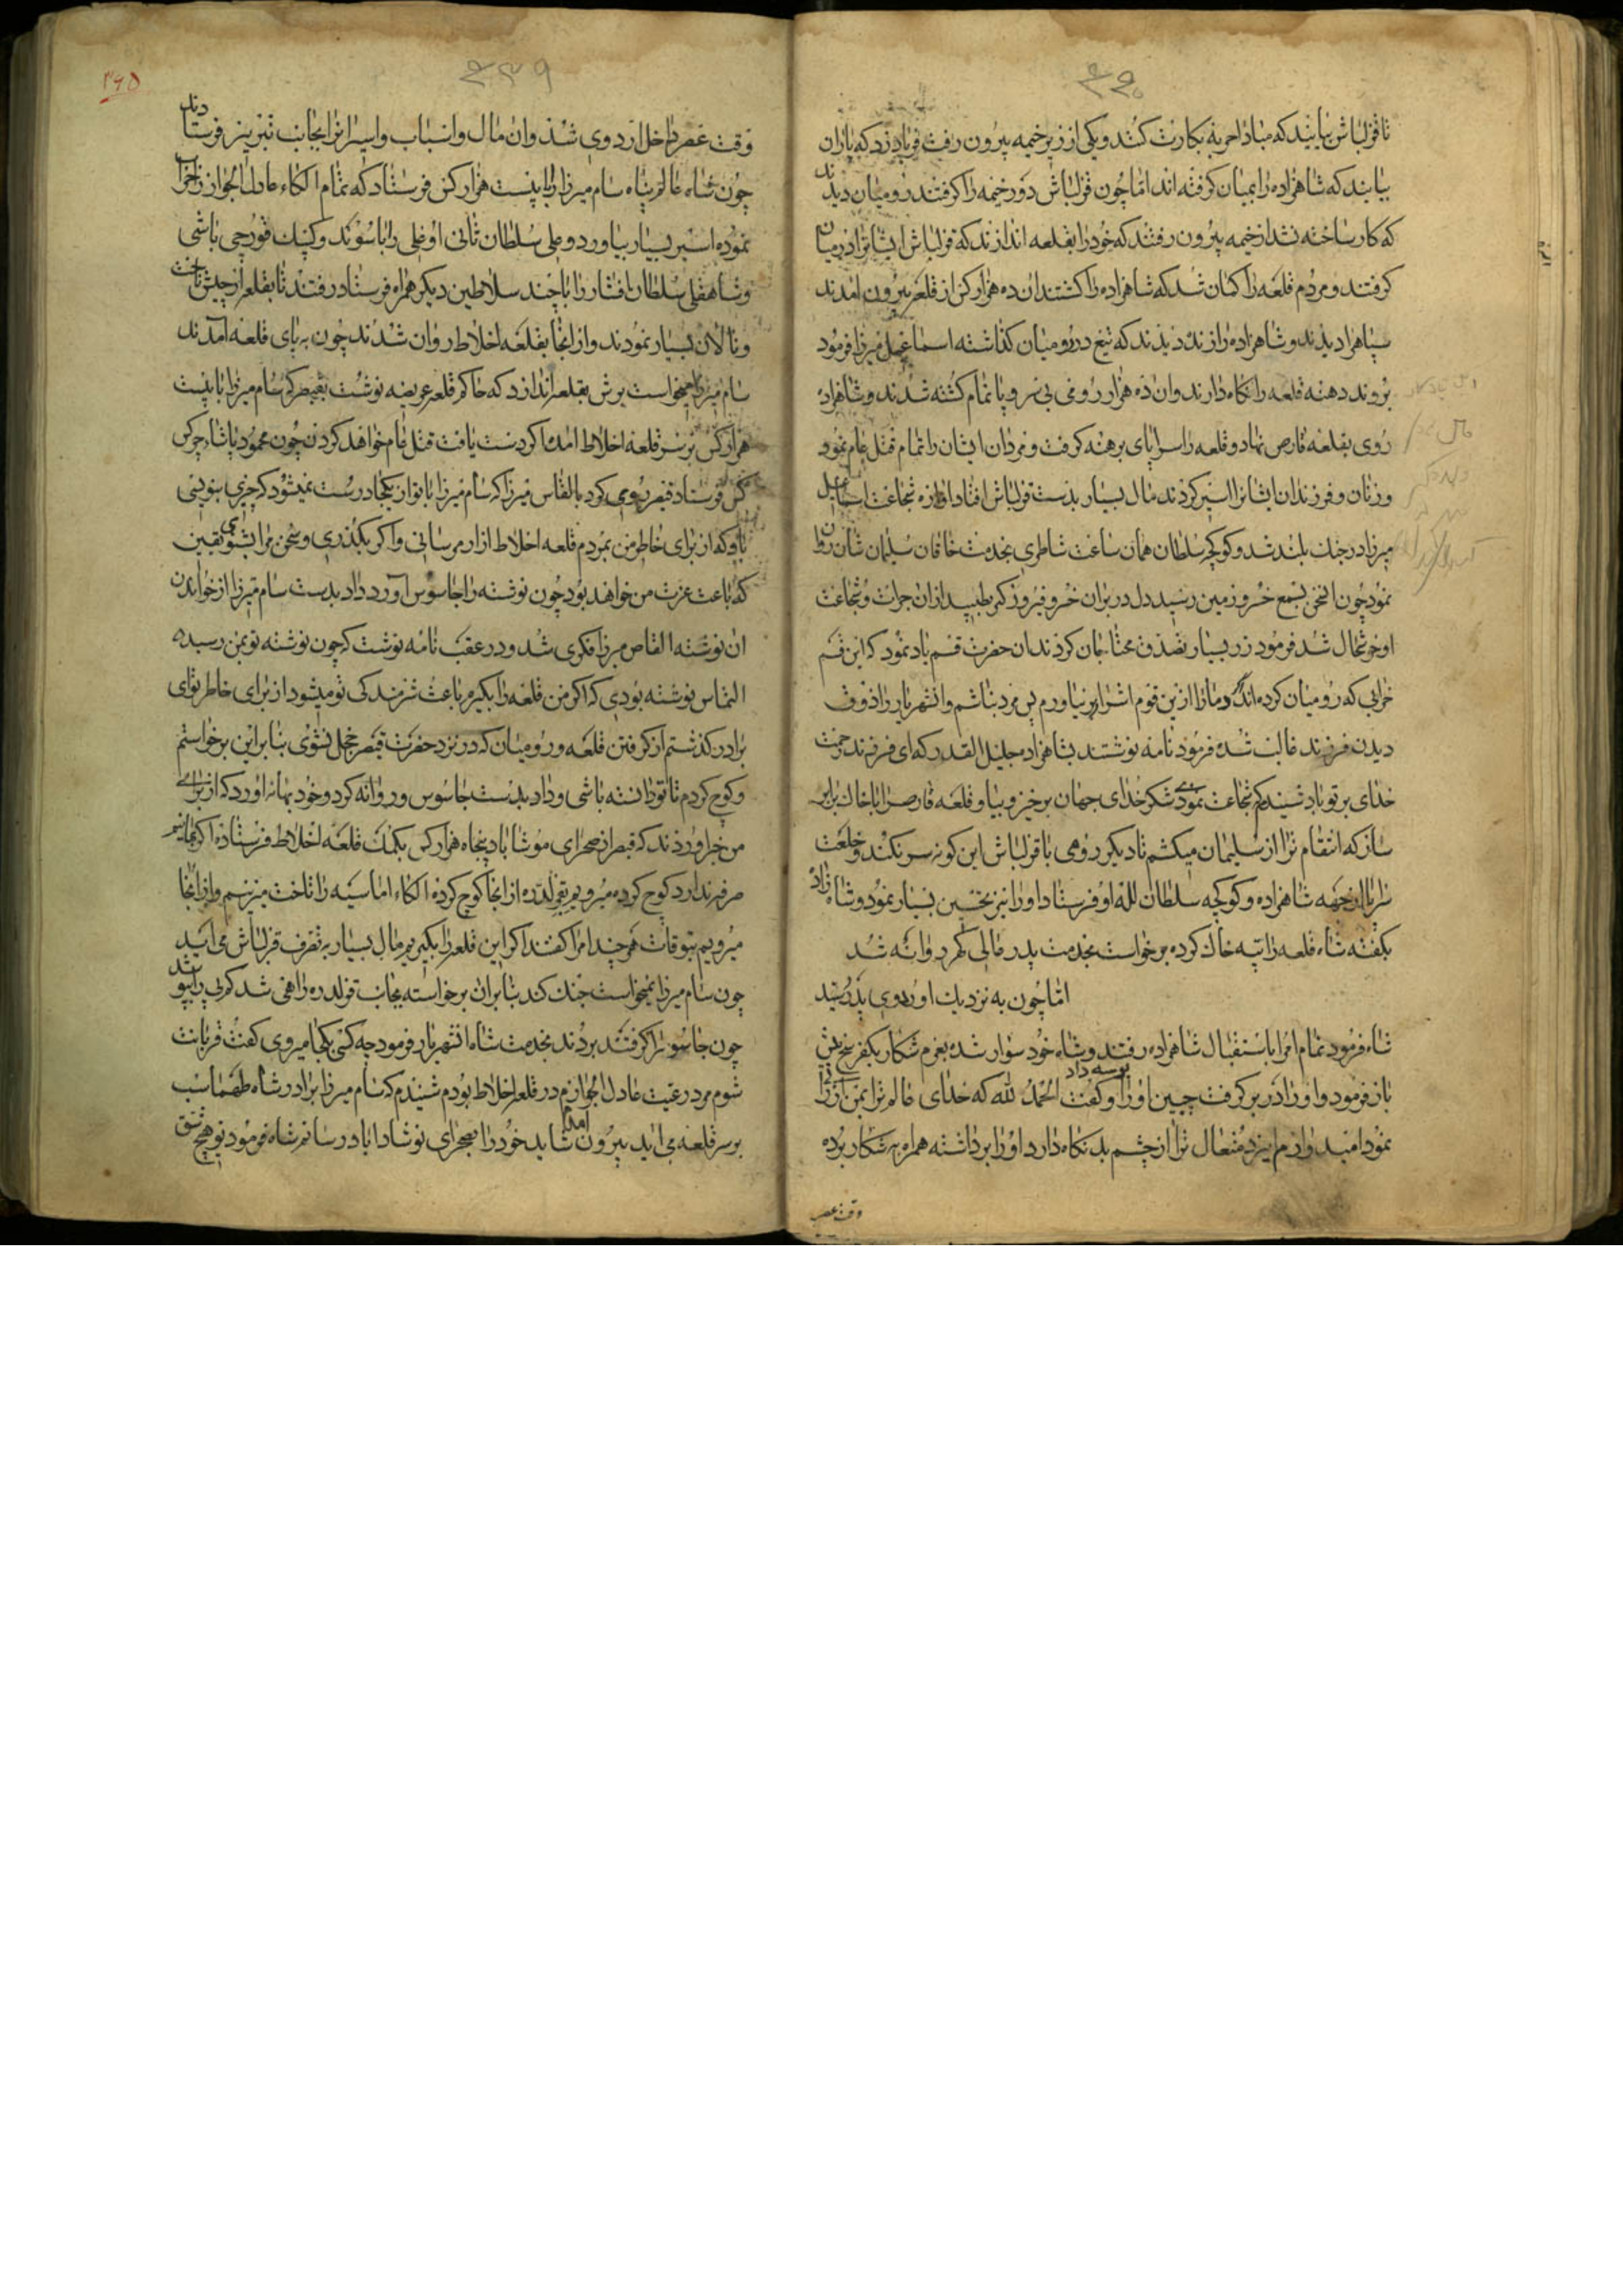 ۴۴۰
تا قزلباش بیایند که مبادا حربه بکارت کنند و یکی از زیر خیمه بیرون رفت فریاد زد که یاران
بیایند که شاهزاده را بمیان گرفته اند اما چون قزلباش دور خیمه را گرفتند رومیان دیدند
که کار ساخته نشد از خیمه بیرون رفتند که خود را بقلعه اندازند که قزلباش ایشانرا در میان
گرفتند و مردم قلعه را گمان شد که شاهزاده را کشتند ان ده هزار کس از قلعه بیرون امدند
شاهزاده را زنده دیدند که تیغ در رومیان گذاشته اسماعیل میرزا فرمود
بروند دهنه قلعه را نگاه دارند و ان ده هزار رومی بی سر و پا تمام کشته شدند و شاهزاده
روی بقلعه قارص نهاد و قلعه را سراپای برهنه گرفت و مردان ایشان را تمام قتل عام نمود
و زنان و فرزندان ایشانرا اسیر کردند مال بسیار بدست قزلباش افتاد اوازه شجاعت اسماعیل
میرزا در جنک بلند شد و کوکچه سلطان همان ساعت شاطری بخدمت خاقان سلیمان شان روان
نمود چون این بسمع خسرو زمین رسید دل در بر ان خسرو فیروزگر طپید از ان جرات و شجاعت
او خوشحال شد فرمود زر بسیار تصدق محتاجان کردند ان حضرت قسم یاد نمود که این قسم
خرابی که رومیان کرده اند که دمار از این قوم اشرار بر نیاورم پس مرد نباشم و انشهریار را ذوق
دیدن فرزند غالب شده فرمود نامه نوشتند بشاهزاده جلیل القدر که ای فرزند رحمت
خدای بر تو باد شنیدم شجاعت نمودی شکر خدای جهان برخیز و بیا و قلعه قارص را با خاک برابر
ساز که انتقام ترا از سلیمان میکشم تا دیگر رومی با قزلباش این گونه سر نکند و خلعت
سراپا از جهه شاهزاده و کوکچه سلطان لله او فرستاد او را نیز تحسین بسیار نمود و شاهزاده
بگفته شاه قلعه را تپه خاک کرده برخواست بخدمت پدر عالی گهر روانه شد
اما چون به نزدیک اوردوی پدر رسید
شاه فرمود تمام امرا باستقبال شاهزاده رفتند و شاه خود سوار شده بعزم شکار یکفرسخ پیش
باز فرمود و او را در بر گرفت جبین او را بوسه داد و گفت الحمد لله که خدای عالم ترا بمن ارزانی
نمود امید وارم ایزد متعال ترا از چشم بد نگاه دارد او را برداشته همراه به شکار برده
وقت عصر
۴۳۹
۲۶۵
وقت عصر داخل اردوی شد و ان مال و اسباب و اسیرانرا بجانب تبریز فرستادند
چون شاه عالم پناه سام میرزا را با بیست هزار کس فرستاد که تمام الکاء عادل الجواز را خراب
نموده اسیر بسیار بیاورد و علی سلطان تاتی اوغلی را با سوندک بیک قورچی باشی
و شاهقلی سلطان افشار را با چند سلاطین دیگر همراه فرستاد رفتند تا بقلعه ارجیش تاخت
و تالان بسیار نمودند و از انجا بقلعه اخلاط روان شدند چون به پای قلعه امدند
سام میرزا میخواست یرش بقلعه اندازد که حاکم قلعه عریضه نوشت بقیصر که سام میرزا با بیست
هزار کس بر سر قلعه اخلاط امد اگر دست یافت قتل عام خواهد کردن چون محمود پاشا دو سه کس
کس فرستاد قیصر رومی کرد بالقاس میرزا که سام میرزا با تو از یکمادرست نمیشود که چیزی بنویسی
باو که از برای خاطر من بمردم قلعه اخلاط ازار مرسانی و اگر بگذری و سخن مرا بشنوی یقین
که باعث عزت من خواهد بود چون نوشته را جاسوس اورد داد بدست سام میرزا از خواندن
ان نوشته القاص میرزا فکری شد و در عقب نامه نوشت که چون نوشته تو بمن رسید
التماس نوشته بودی که اگر من قلعه را بگیرم باعث شرمندکی تو میشود از برای خاطر تو ای
برادر گذشتم از گرفتن قلعه و رومیان که در نزد حضرت قیصر خجل نشوی بنابراین برخواستم
و کوچ کردم تا تو دانسته باشی و داد بدست جاسوس و روانه کرد و خود بهانه اورد که از برای
من خبر اوردند که قیصر از صحرای موش اباد پنجاه هزار کس بکمک قلعه اخلاط فرستاده اگر بمانیم
صرفه ندارد کوچ کرده میرویم بقولدره از انجا کوچ کرده الکاء اماسیه را تاخت میزنیم و از انجا
میرویم بتوقات هر چند امرا گفتند اگر این قلعه را بگیریم مال بسیار به تصرف قزلباش می اید
چون سام میرزا نمیخواست جنک کند بنابر ان برخواسته بجانب قولدره راهی شد
چون جاسوس را گرفتند بردند بخدمت شاه انشهریار فرمود چه کسی بکجا میروی گفت قربانت
شوم مرد رعیت عادل الجوازم در قلعه اخلاط بودم شنیدم که سام میرزا برادر شاه طهماسب
بر سر قلعه می اید بیرون امدم شاید خود را بصحرای نوشاداباد رسانم شاه فرمود تو هیچ